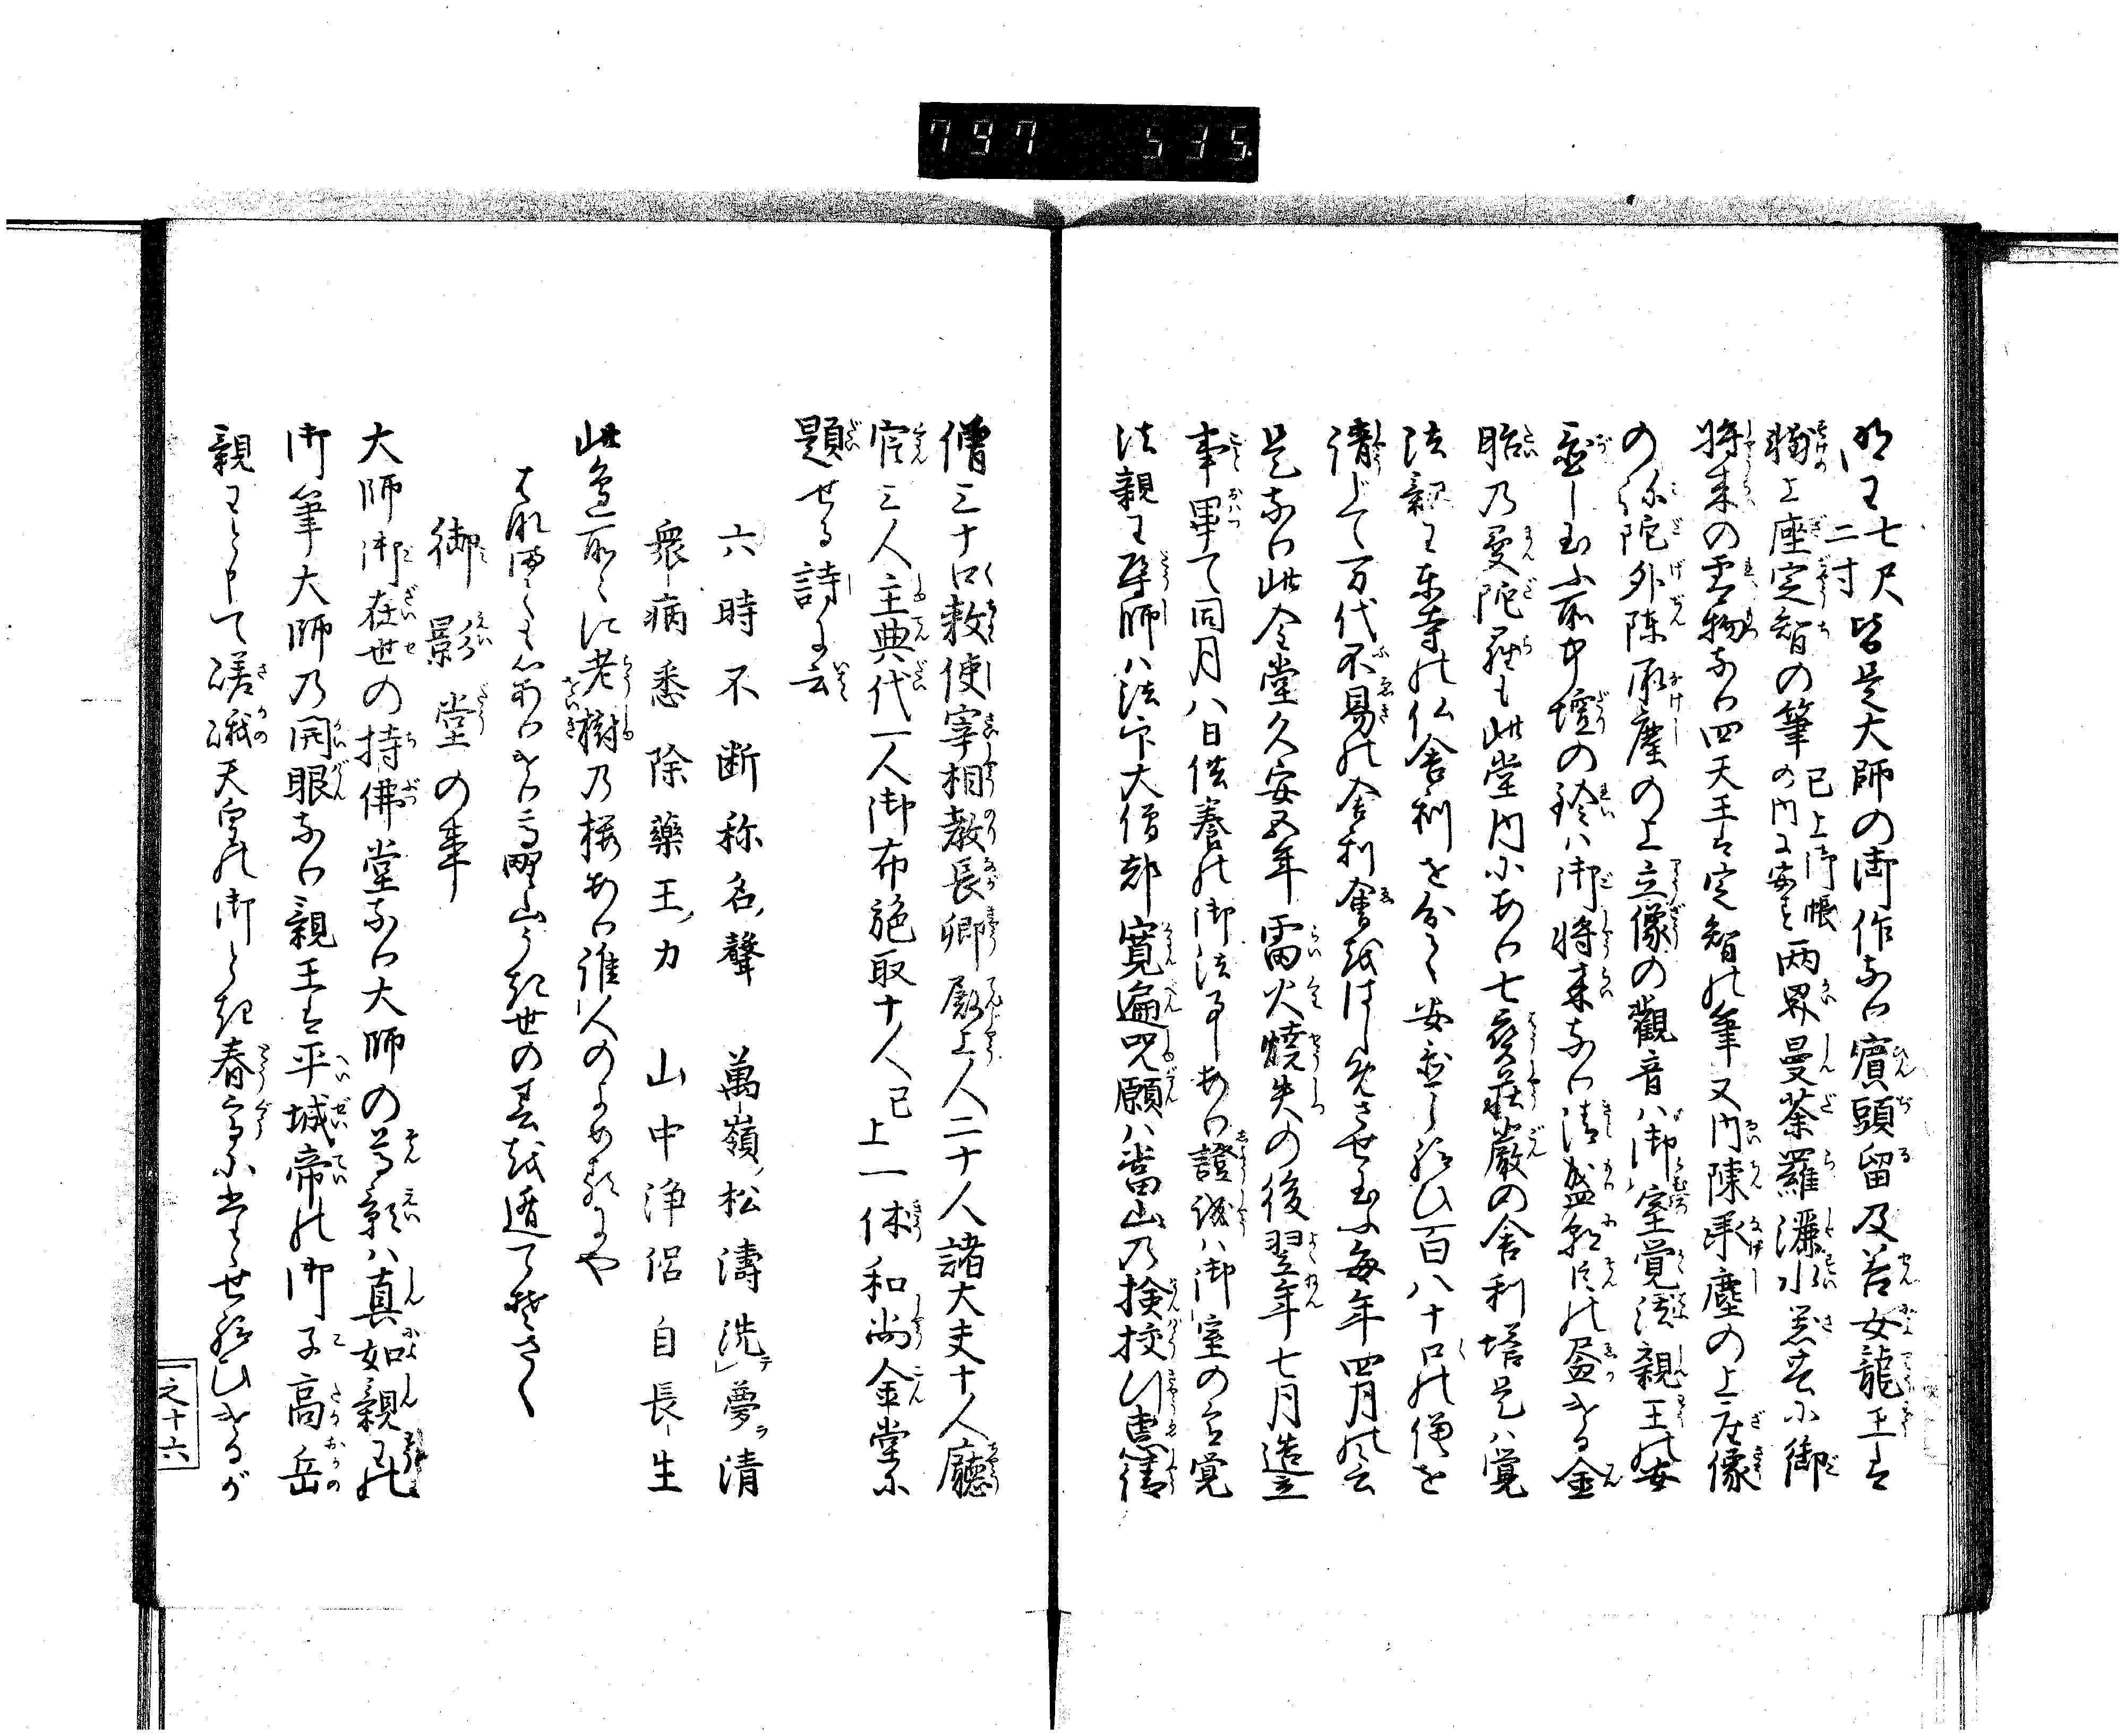 797 535
明王七尺二寸皆是大師の御作なり賓頭留及善女龍王は
稱上座定智の筆已上御帳の内に安す両界曼荼羅灑水器共に御
将来の霊物なり四天王は定智の筆又内陳承塵の上座像
の弥陀外陳承塵の上立像の觀音ハ御室覚法親王の安
置し玉ふ所中壇の鈴ハ御将来なり清盛朝臣の畫ける金
胎の曼陀羅も此堂内にあり七寶荘嚴の舎利塔是ハ覚
法親王東寺の仏舎利を分て安置し給ひ百八十口の僧を
請じて万代不易の舎利會をはしめさせ玉ふ毎年四月の云云
是なり此金堂久安五年雷火焼失の後翌年七月造立
事畢て同月八日供養の御法事あり證誠ハ御室の宮覚
法親王導師ハ法印大僧都寛遍呪願ハ當山の検校行恵請
僧三十口敕使宰相教長卿殿上人二十人諸大夫十人廳
官三人主典代一人御布施取十人已上一休和尚金堂に
題せる詩に云
六時不断称名聲　萬嶺松濤洗テ夢ラ清
衆病悉除藥王力　山中浄侶自長生
此邉所々に老樹乃桜あり誰人のよめるにや
はな
御影堂の事
大師御在世の持佛堂なり大師の尊影ハ真如親王の
御筆大師乃開眼なり親王は平城帝の御子高岳
親王と申て嵯峨天皇の御とき春宮に立せ給ひけるが
一之十六